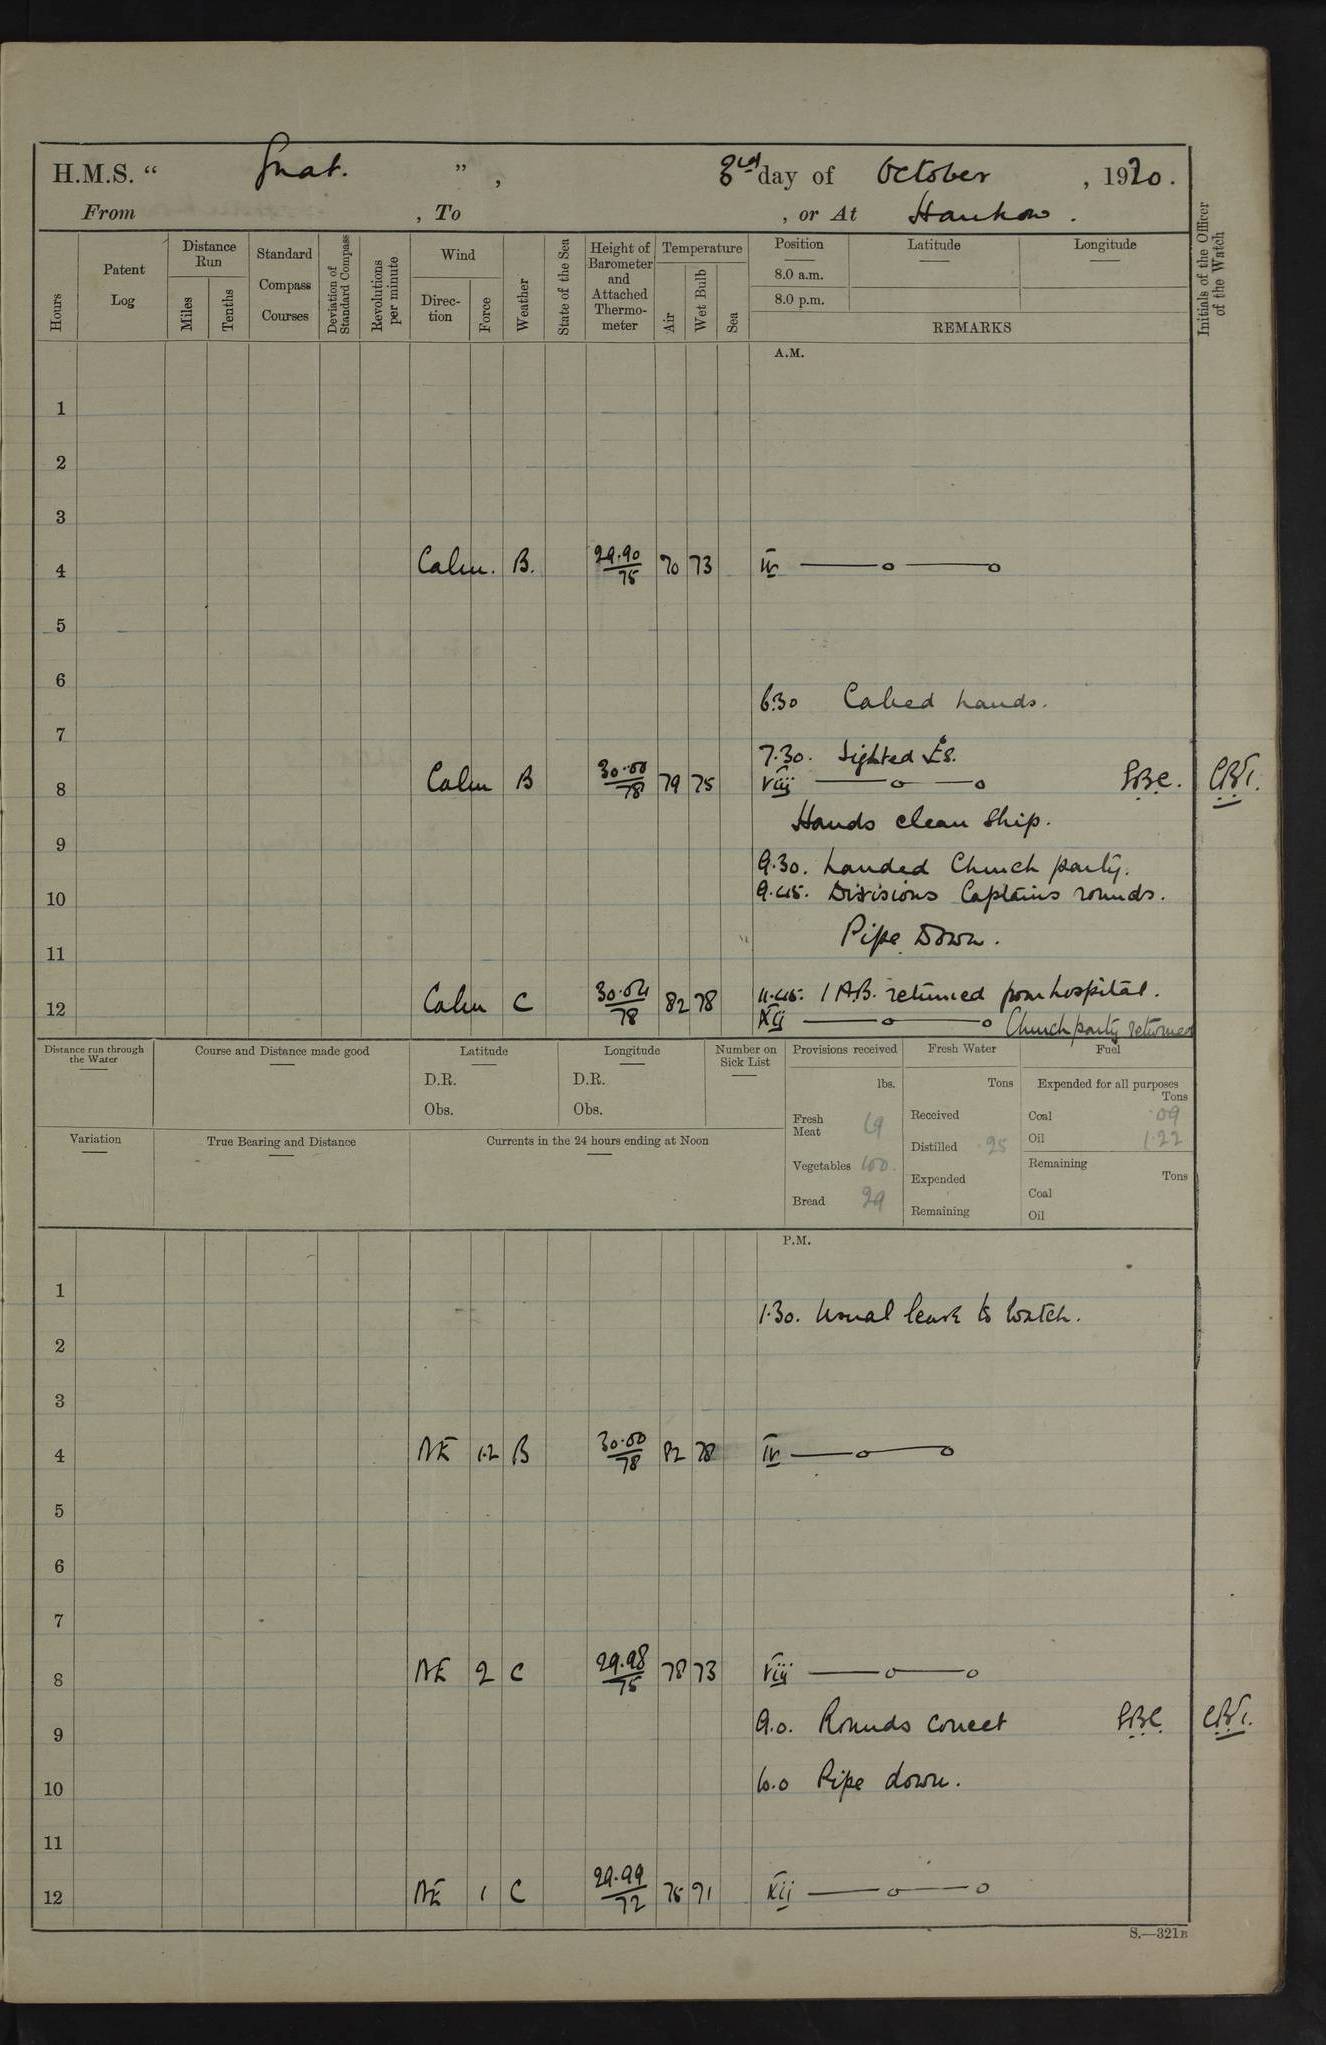 H.M.S. “ Gnat. ” , 3rd day of October , 1920.
From , To , or At Hankow .
Hours
Patent Log
Distance Run
Miles
Tenths
Standard Compass Courses
Deviation of Standard Compass
Revolutions per minute
Wind
Direction
Force
Weather
State of the Sea
Height of Barometer and Attached Thermometer
Temperature
Air
Wet Bulb
Sea
Position
8.0 a.m.
8.0 p.m.
Latitude
Longitude
REMARKS
Initials of the Officer of the Watch
A.M.
1
2
3
4 Calm. B. 29.90/75 70 73 IV —o—o
5
6
6.30 Called hands.
7
7.30. Lighted
8 Calm B 30.00/78 79 75 VIII —o—o
Hands clean Ship.
9
9.30. Landed Church party.
10 9.45. Divisions Captains rounds.
Pipe Down.
11
11.45. 1 A.B. returned from hospital.
12 Calm C 30.04/78 82 78 XII —o—o Church party returned
Distance run through the Water
Course and Distance made good
Latitude
D.R.
Obs.
Longitude
D.R.
Obs.
Number on Sick List
Provisions received
lbs.
Fresh Meat 69
Vegetables 100.
Bread 29
Fresh Water
Tons
Received
Distilled .25
Expended
Remaining
Fuel
Expended for all purposes
Tons
Coal .09
Oil 1.22
Remaining
Tons
Coal
Oil
Variation
True Bearing and Distance
Currents in the 24 hours ending at Noon
P.M.
1
1.30. Usual leave to Watch.
2
3
4 NE 1.2 B 30.00/78 82 78 IV —o—o
5
6
7
8 NE 2 C 29.98/75 78 73 VIII —o—o
9 9.0. Rounds correct
10 10.0 Pipe down.
11
12 NE 1 C 29.99/72 75 71 XII —o—o
S.—321B